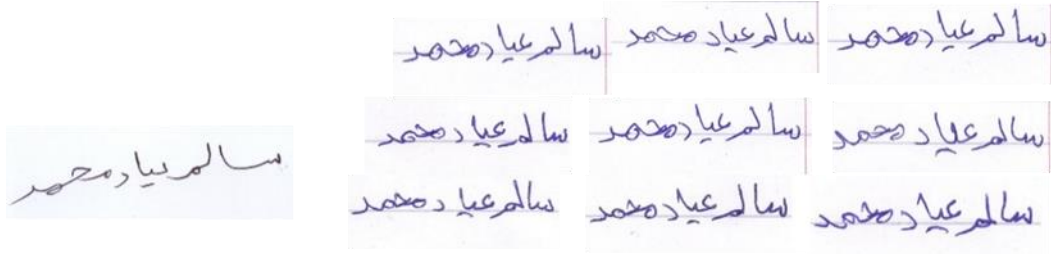 سالم عياد محمد
سالم عياد محمد
سالم عياد محمد
سالم عياد محمد
سالم عياد محمد
سالم عياد محمد
سالم عياد محمد
سالم عياد محمد
سالم عياد محمد
سالم عياد محمد